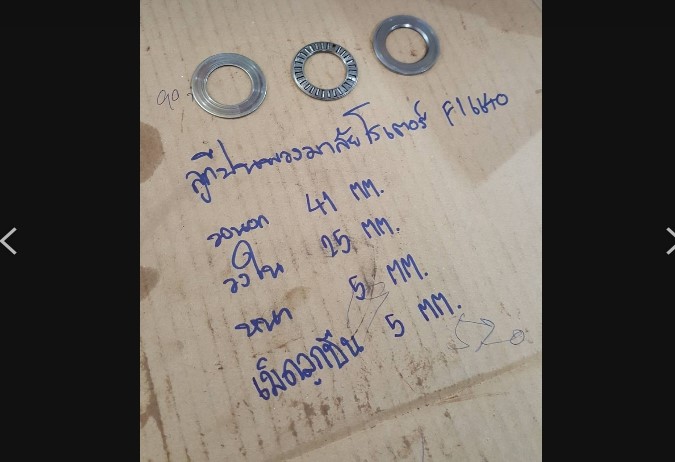 ลูกปืนพวงมาลัยโรเตอร์ F1640
วงนอก 41 มม.
วงใน 25 มม.
หนา 5 มม.
เม็ดลูกปืน 5 มม.
520